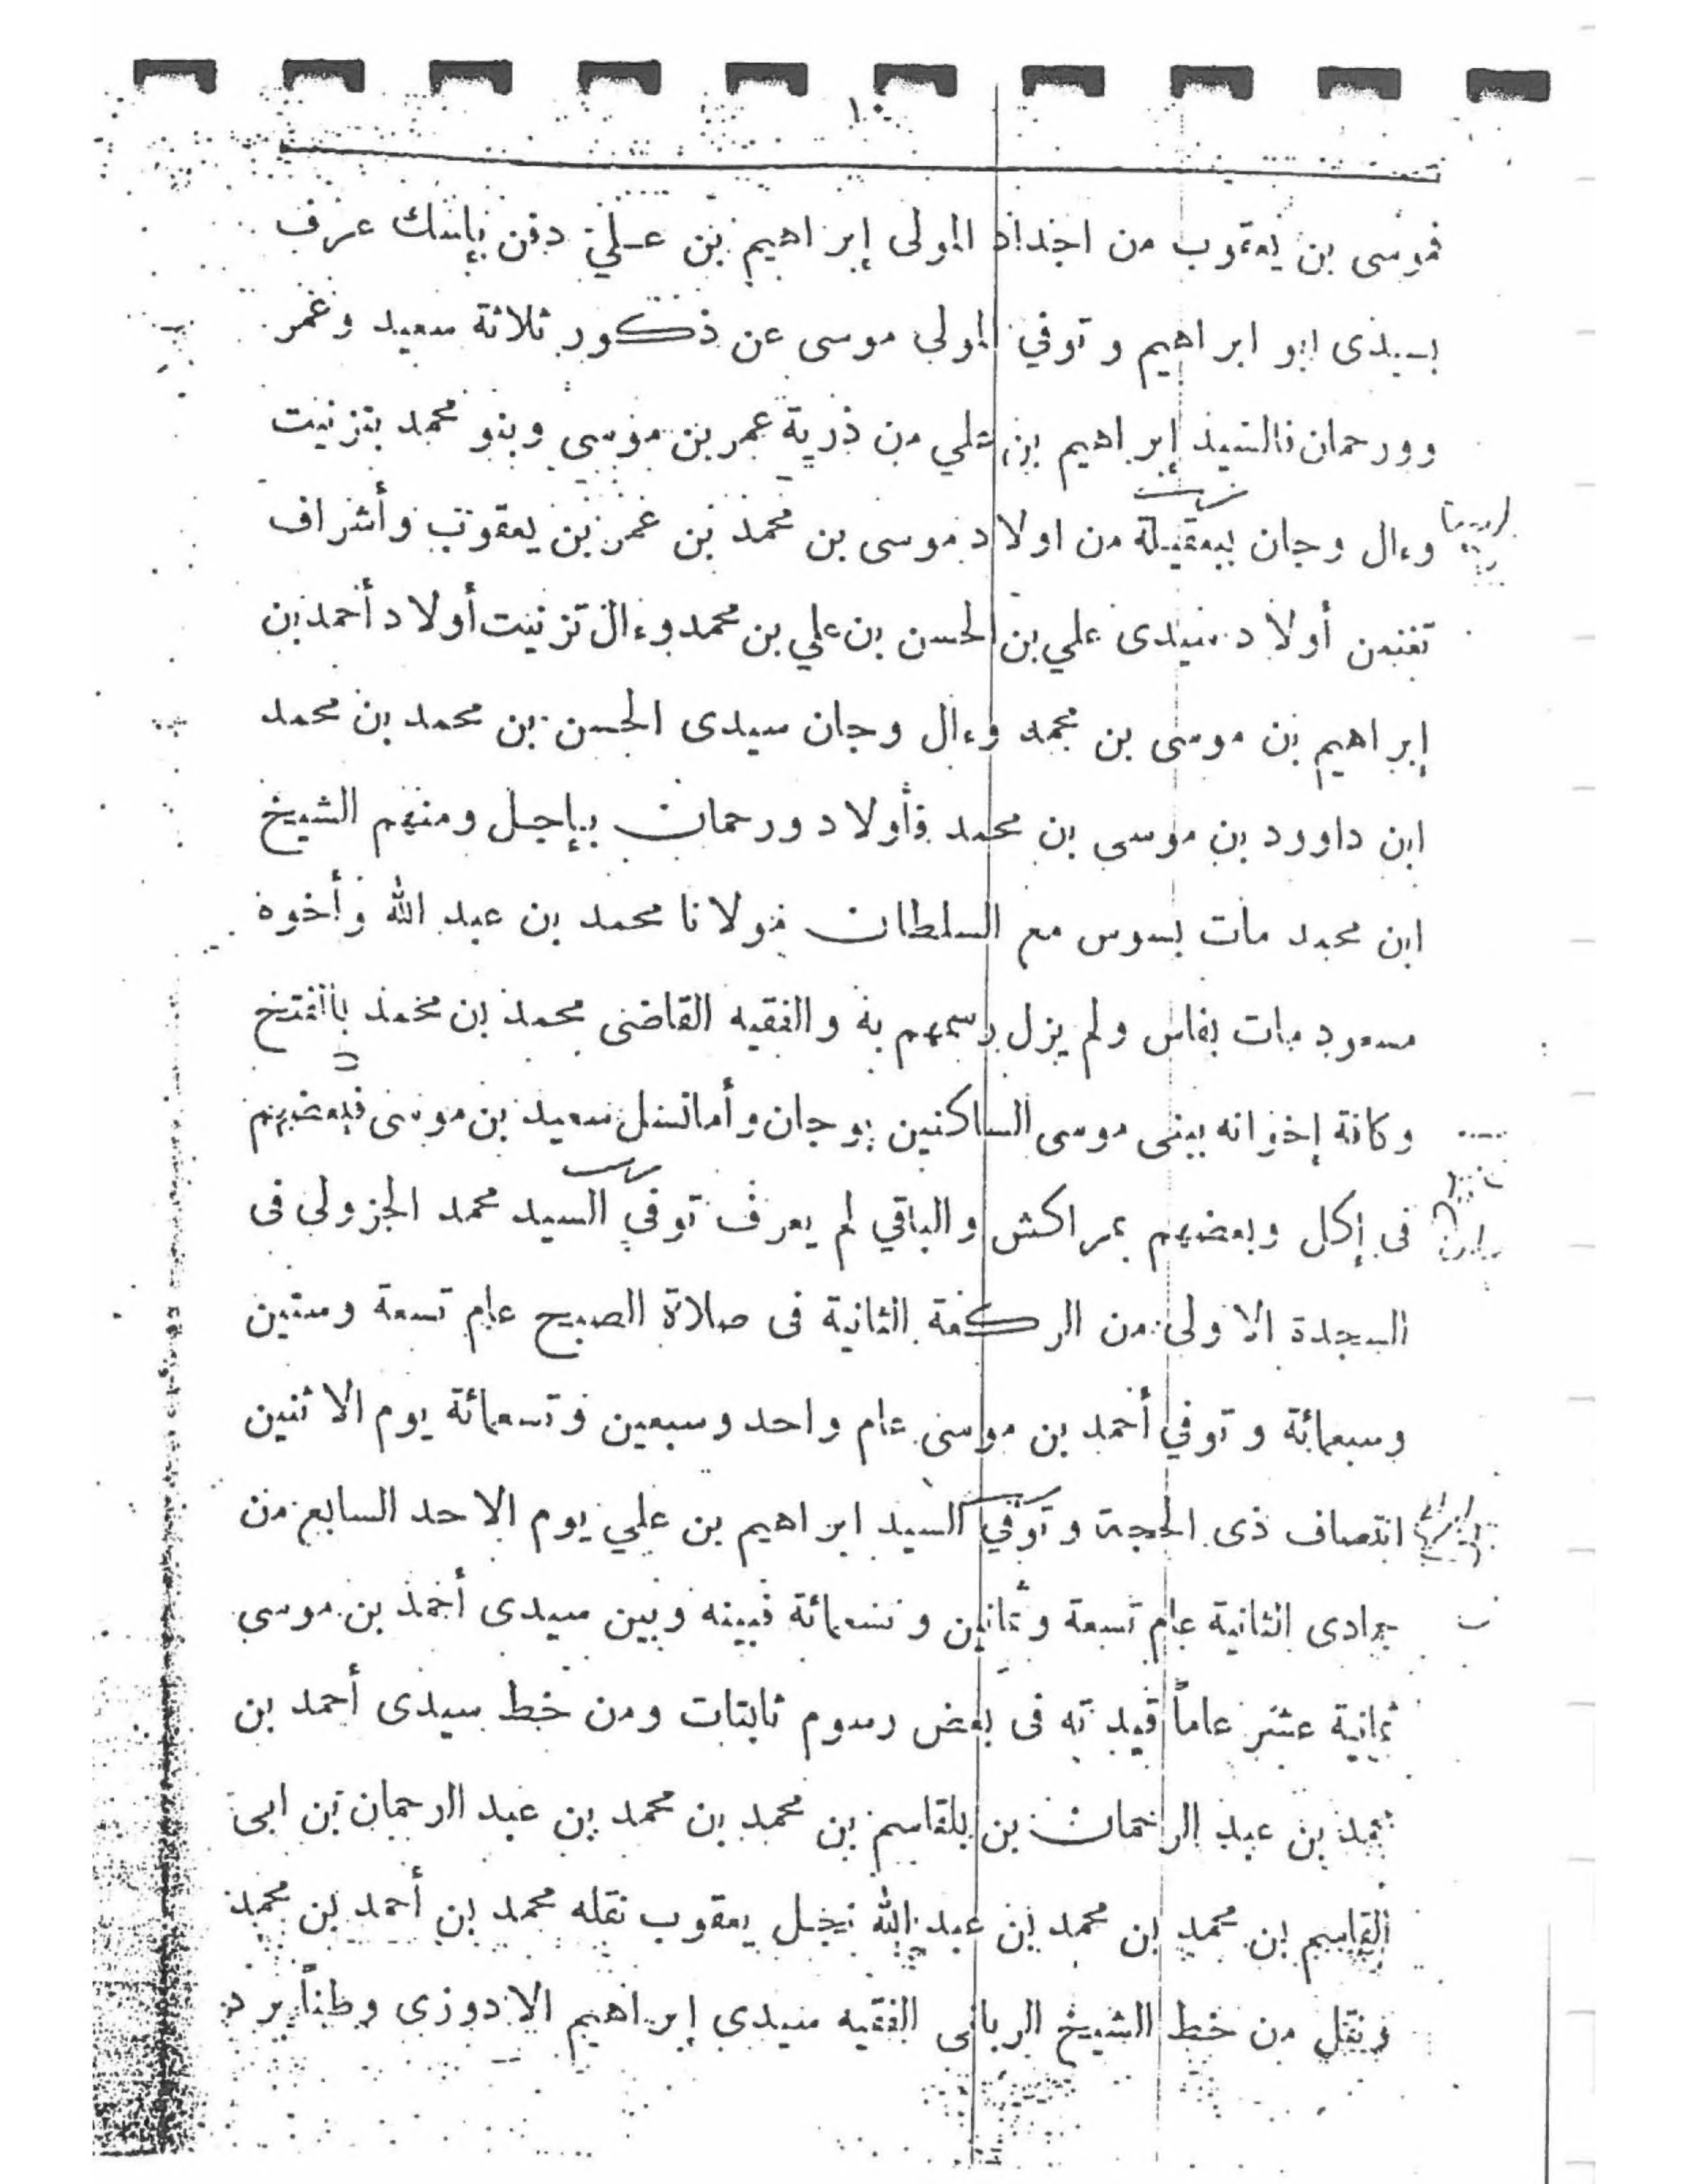 ١٠
فموسى بن يعقوب من اجداد المولى إبراهيم بن علي دفن بإسك عرف
بسيدى ابو ابراهيم وتوفي المولى موسى عن ذكور ثلاثة سعيد وعمر
وورحمان فالسيد إبراهيم بن علي من ذرية عمر بن موسى وبنو محمد بتزنيت
وءال وجان ببعقيلة من اولاد موسى بن محمد بن عمر بن يعقوب وأشراف
أولاد سيدى علي بن الحسن بن علي بن محمد وءال تزنيت أولاد أحمد بن
إبراهيم بن موسى بن محمد وءال وجان سيدى الحسن بن محمد بن محمد
ابن داوود بن موسى بن محمد فأولاد ورحمان بإجل ومنهم الشيخ
ابن محمد مات بسوس مع السلطان مولانا محمد بن عبد الله وأخوه
مسعود مات بفاس ولم يزل رسمهم به والفقيه القاضى محمد بن محمد بالفتح
وكافة إخوانه ببنى موسى الساكنين بوجان وأما نسل سعيد بن موسى فبعضهم
فى إكل وبعضهم بمراكش والباقي لم يعرف توفي السيد محمد الجزولى فى
السجدة الاولى من الركعة الثانية فى صلاة الصبح عام تسعة وستين
وسبعمائة وتوفي أحمد بن موسى عام واحد وسبعين وتسعمائة يوم الاثنين
انتصاف ذى الحجة وتوفي السيد ابراهيم بن علي يوم الاحد السابع من
جمادى الثانية عام تسعة وثمانين وتسعمائة فبينه وبين سيدى أحمد بن موسى
ثمانية عشر عاماً قيدته فى بعض رسوم ثابتات ومن خط سيدى أحمد بن
محمد بن عبد الرحمان بن بلقاسم بن محمد بن محمد بن عبد الرحمان بن ابى
القاسم بن محمد بن محمد بن عبد الله نجل يعقوب نقله محمد بن أحمد بن محمد
ونقل من خط الشيخ الربانى الفقيه سيدى إبراهيم الادوزى وطناً